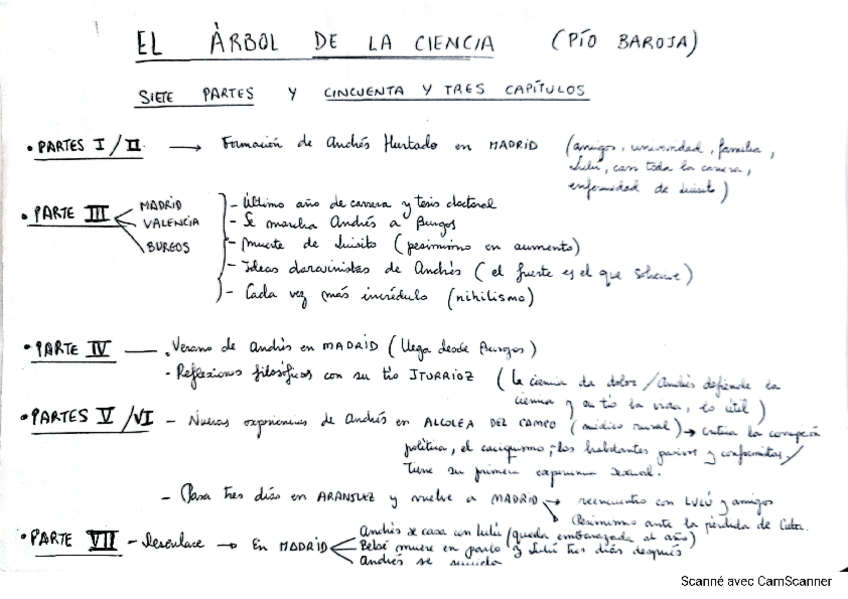 EL ÀRBOL DE LA CIENCIA (PÍO BAROJA)
SIETE PARTES Y CINCUENTA Y TRES CAPÍTULOS
• PARTES I / II → Formación de Andrés Hurtado en MADRID (amigos, universidad, familia,
Lulú, casi toda la carrera,
enfermedad de Luisito)
• PARTE III MADRID
VALENCIA
BURGOS
- Último año de carrera y tesis doctoral
- Se marcha Andrés a Burgos
- Muerte de Luisito (pesimismo en aumento)
- Ideas darwinistas de Andrés (el fuerte es el que sobrevive)
- Cada vez más incrédulo (nihilismo)
• PARTE IV — . Verano de Andrés en MADRID (llega desde Burgos)
- Reflexiones filosóficas con su tío ITURRIOZ (la ciencia da dolor / Andrés defiende la
ciencia y su tío la vida, lo útil)
• PARTES V / VI - Nuevas experiencias de Andrés en ALCOLEA DEL CAMPO (médico rural) → critica la corrupción
política, el caciquismo, los habitantes pasivos y conformistas /
Tiene su primera experiencia sexual.
- Pasa tres días en ARANJUEZ y vuelve a MADRID → reencuentro con LULÚ y amigos
Pesimismo ante la pérdida de Cuba.
• PARTE VII - Desenlace → En MADRID
Andrés se casa con Lulú (queda embarazada al año)
Bebé muere en parto y Lulú tres días después
Andrés se suicida
Scanné avec CamScanner